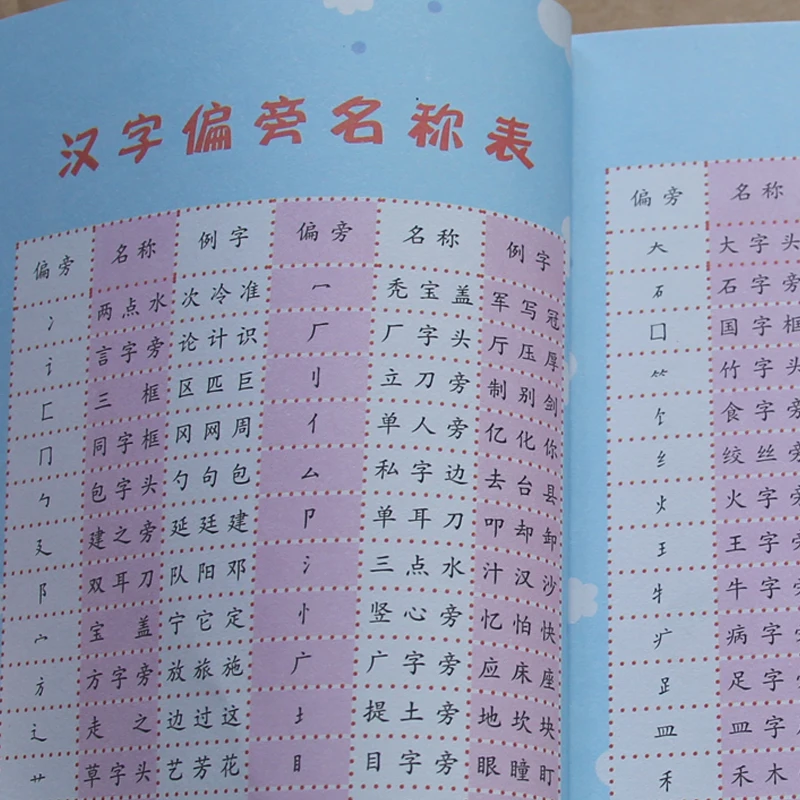 汉字偏旁名称表
偏旁 名称 例字 偏旁 名称 例字
冫 两点水 次冷准 冖 秃宝盖 军写冠
讠 言字旁 论计识 厂 厂字头 厅压厚
匚 三框 区匹巨 刂 立刀旁 制别剑
冂 同字框 冈网周 亻 单人旁 亿化你
勹 包字头 勺句包 厶 私字边 去台县
廴 建之旁 延廷建 卩 单耳刀 叩却卸
阝 双耳刀 队阳邓 氵 三点水 汁汉沙
宀 宝盖 宁它定 忄 竖心旁 忆怕快
方 方字旁 放旅施 广 广字旁 应床座
辶 走之 边过这 土 提土旁 地坎块
艹 草字头 艺芳花 目 目字旁 眼瞳盯
偏旁 名称
大 大字头
石 石字旁
囗 国字框
⺮ 竹字头
饣 食字旁
纟 绞丝旁
火 火字旁
王 王字旁
牜 牛字旁
疒 病字
𧾷 足字
皿 皿字
禾 禾木